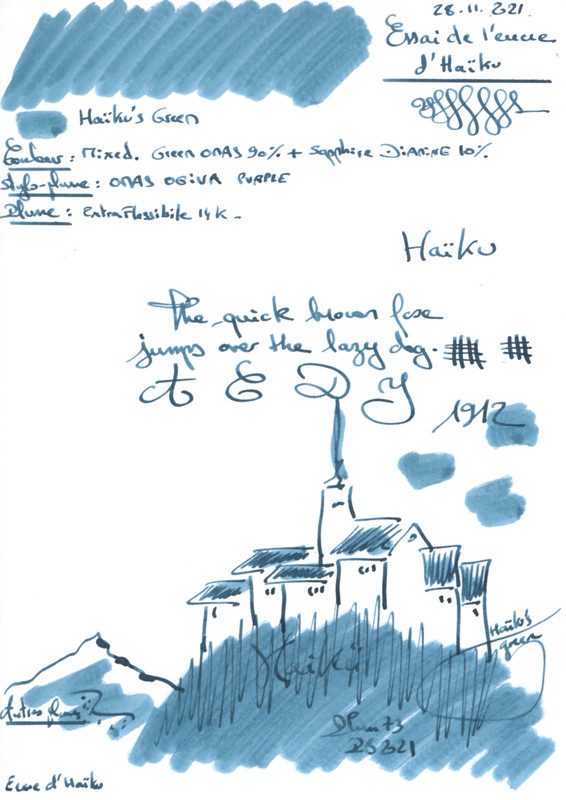 28.11.2021
Essai de l'encre
d'Haïku
Haïku's Green
Couleur : Mixed. Green OMAS 90% + Sapphire DIAMINE 10%.
Stylo-plume : OMAS OGIVA PURPLE
Plume : Extra Flessibile 14 K -
Haïku
The quick brown foxe
jumps over the lazy dog.
A E D Y
1912
Haïku's
green
Haïku
Autres plumes
Plum 73
Encre d'Haïku